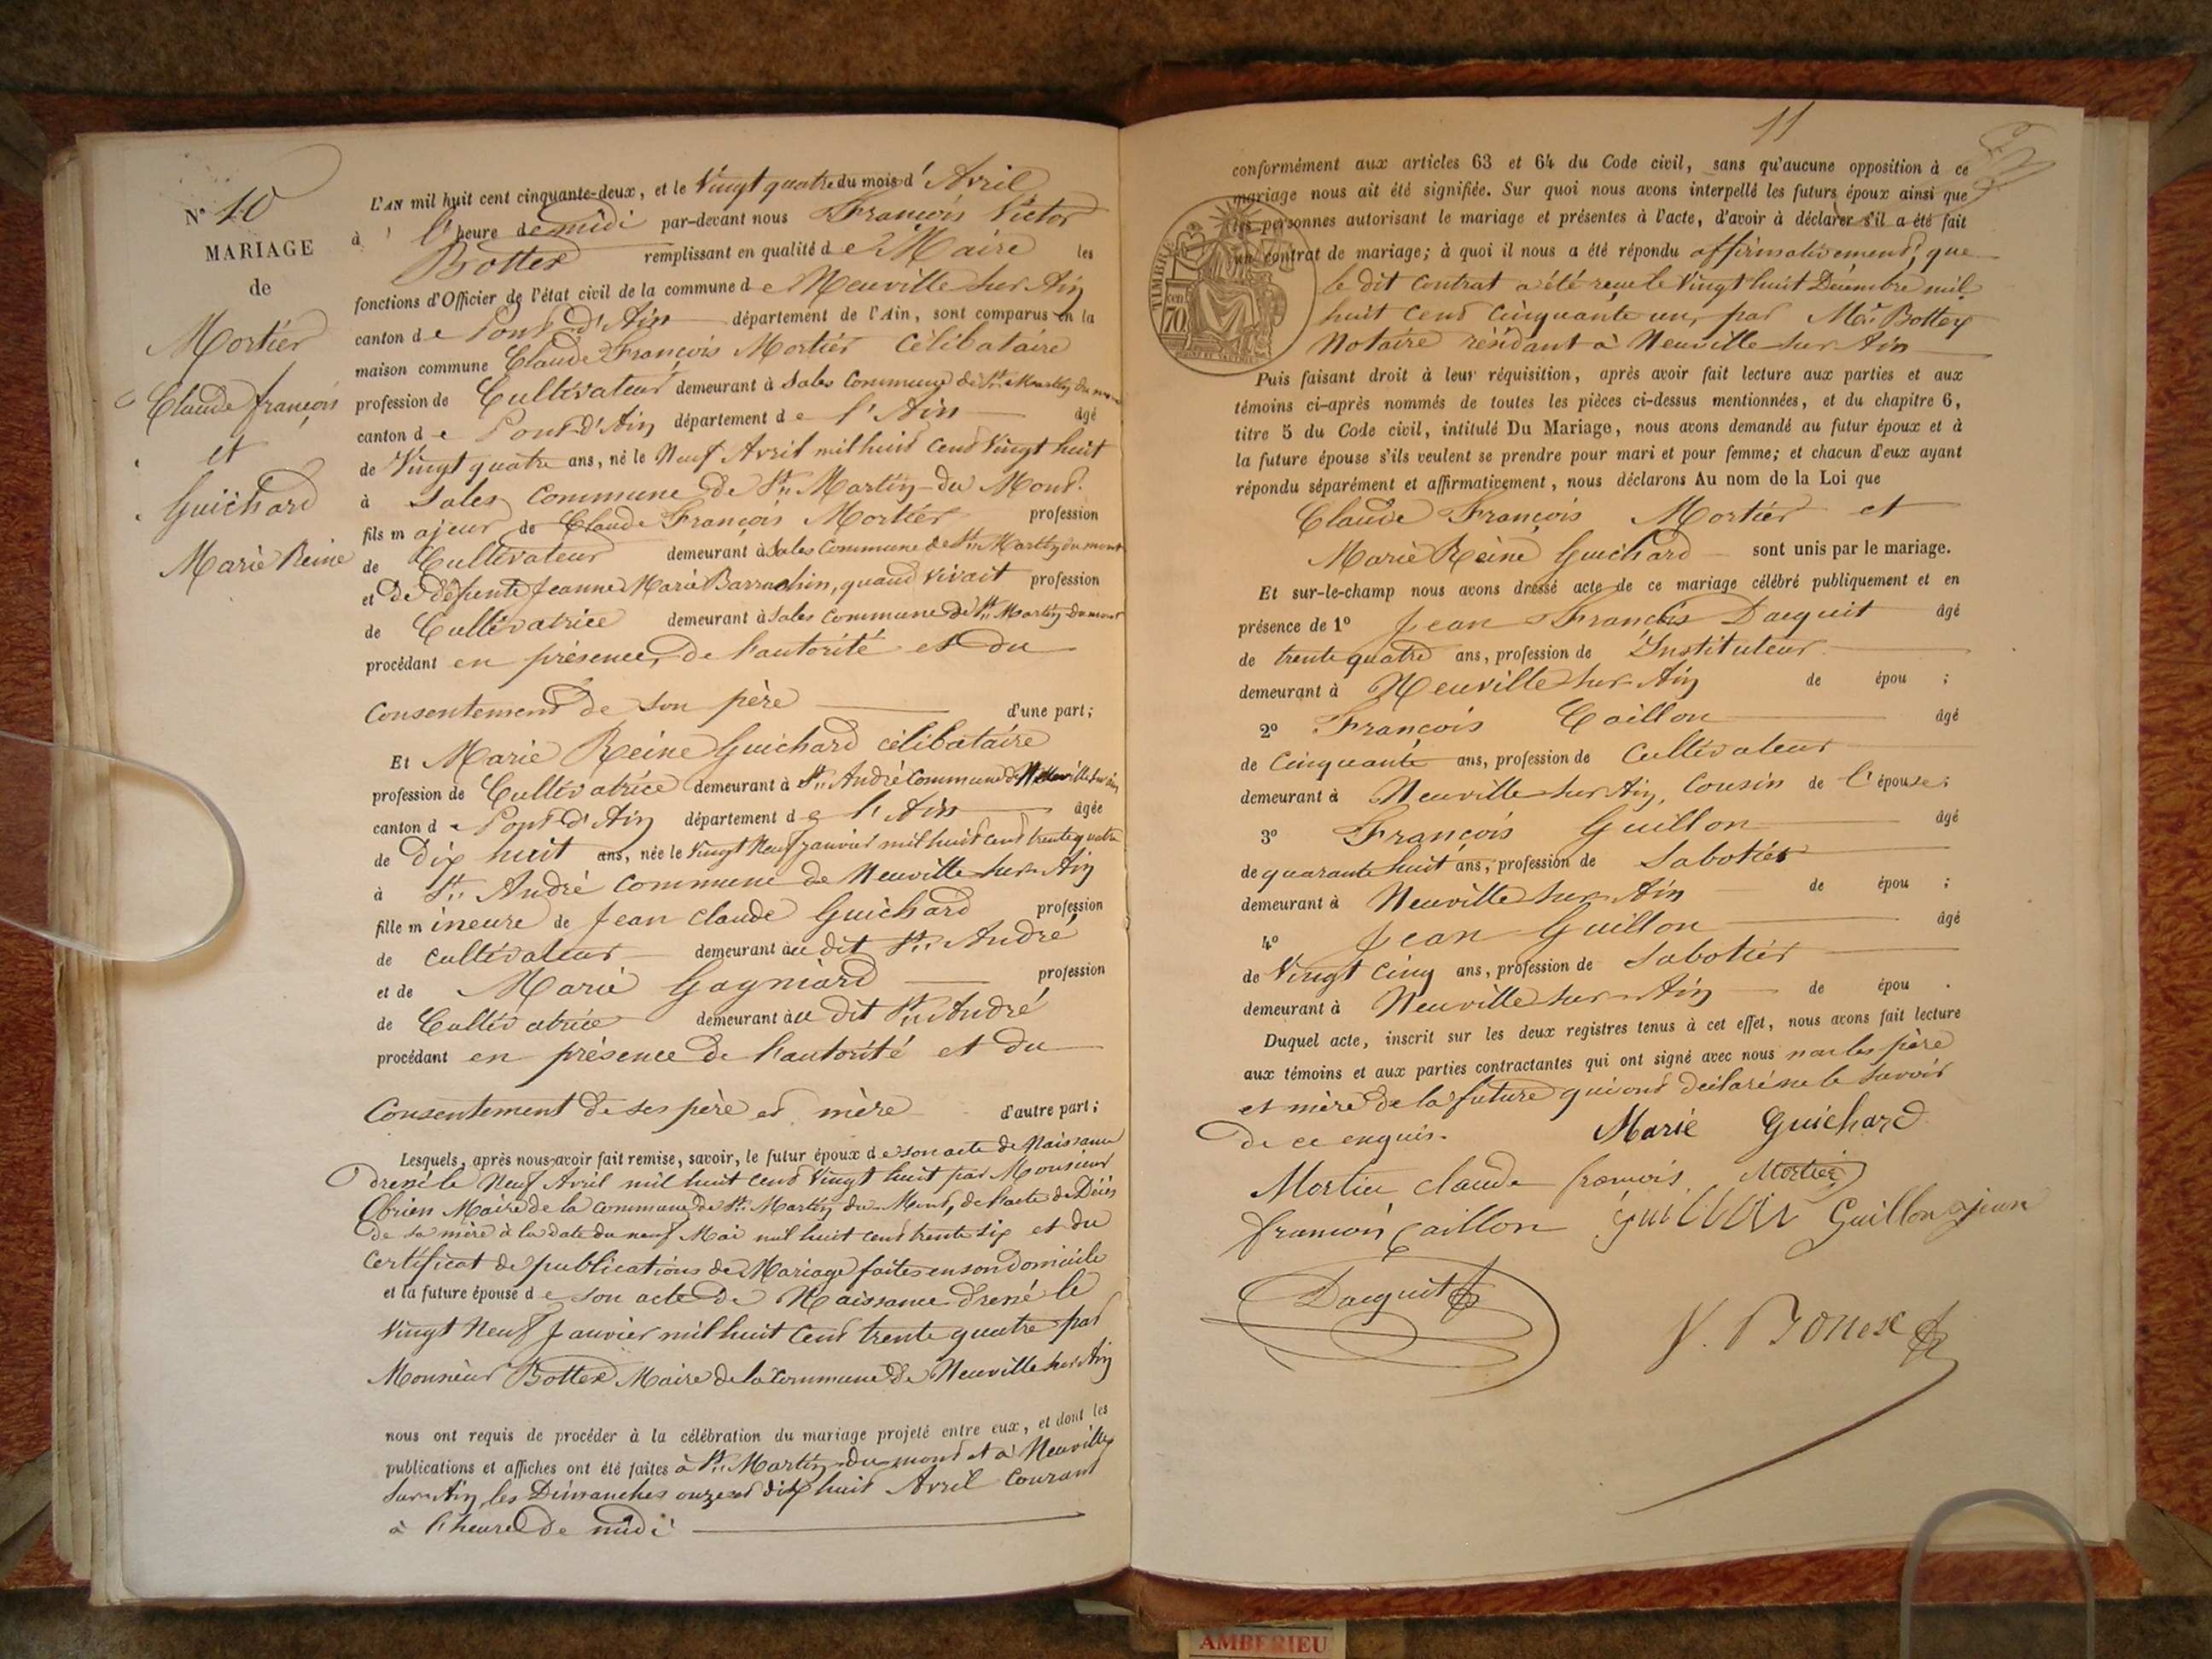 N° 10
MARIAGE
de
Mortier
Claude françois
et
Guichard
Marie Reine
L'AN mil huit cent cinquante-deux, et le Vingt quatre du mois d'Avril
à l'heure de midi par-devant nous François Victor
Bottex remplissant en qualité de Maire les
fonctions d'Officier de l'état civil de la commune de Neuville sur Ain
canton de Pont d'Ain département de l'Ain, sont comparus en la
maison commune Claude François Mortier célibataire
profession de Cultivateur demeurant à Sales Commune de St Martin du mont
canton de Pont d'Ain département de l'Ain âgé
de Vingt quatre ans, né le Neuf Avril mil huit Cent Vingt huit
à Sales Commune de St Martin du Mont.
fils majeur de Claude François Mortier profession
de Cultivateur demeurant à Sales Commune de St Martin du mont
et de défunte Jeanne Marie Barrachin, quand vivait profession
de Cultivatrice demeurant à Sales Commune de St Martin du mont
procédant en présence, de l'autorité et du
Consentement de son père d'une part;
Et Marie Reine Guichard célibataire
profession de Cultivatrice demeurant à St André Commune de Neuville sur Ain
canton de Pont d'Ain département de l'Ain âgée
de dix huit ans, née le Vingt Neuf janvier mil huit Cent trente quatre
à St André Commune de Neuville sur Ain
fille mineure de Jean Claude Guichard profession
de Cultivateur demeurant au dit St André
et de Marie Gagniard profession
de Cultivatrice demeurant au dit St André
procédant en présence de l'autorité et du
Consentement de ses père et mère d'autre part;
Lesquels, après nous avoir fait remise, savoir, le futur époux de son acte de Naissance
dressé le Neuf Avril mil huit Cent Vingt huit par Monsieur
Obrien Maire de la Commune de St Martin du Mont, de l'acte de Décès
de sa mère à la date du neuf Mai mil huit cent trente six et du
Certificat de publications de Mariage faites en son domicile
et la future épouse de son acte de Naissance dressé le
Vingt Neuf Janvier mil huit Cent trente quatre par
Monsieur Bottex Maire de la Commune de Neuville sur Ain
nous ont requis de procéder à la célébration du mariage projeté entre eux, et dont les
publications et affiches ont été faites à St Martin du mont et à Neuville
sur Ain les Dimanches onze et dix huit Avril Courant
à l'heure de midi
11
conformément aux articles 63 et 64 du Code civil, sans qu'aucune opposition à ce
mariage nous ait été signifiée. Sur quoi nous avons interpellé les futurs époux ainsi que
les personnes autorisant le mariage et présentes à l'acte, d'avoir à déclarer s'il a été fait
un contrat de mariage; à quoi il nous a été répondu affirmativement, que
le dit Contrat a été reçu le Vingt huit Décembre mil
huit Cent Cinquante un, par Me Bottex
Notaire résidant à Neuville sur Ain
TIMBRE
70
Puis faisant droit à leur réquisition, après avoir fait lecture aux parties et aux
témoins ci-après nommés de toutes les pièces ci-dessus mentionnées, et du chapitre 6,
titre 5 du Code civil, intitulé Du Mariage, nous avons demandé au futur époux et à
la future épouse s'ils veulent se prendre pour mari et pour femme; et chacun d'eux ayant
répondu séparément et affirmativement, nous déclarons Au nom de la Loi que
Claude François Mortier et
Marie Reine Guichard sont unis par le mariage.
Et sur-le-champ nous avons dressé acte de ce mariage célébré publiquement et en
présence de 1° Jean Francis Dacquit âgé
de trente quatre ans, profession de Instituteur
demeurant à Neuville sur Ain de épou ;
2° François Caillon âgé
de Cinquante ans, profession de Cultivateur
demeurant à Neuville sur Ain, Cousin de l'épouse;
3° François Guillon âgé
de quarante huit ans, profession de Sabotier
demeurant à Neuville sur Ain de épou ;
4° Jean Guillon âgé
de Vingt Cinq ans, profession de Sabotier
demeurant à Neuville sur Ain de épou .
Duquel acte, inscrit sur les deux registres tenus à cet effet, nous avons fait lecture
aux témoins et aux parties contractantes qui ont signé avec nous non les père
et mère de la future qui ont déclaré ne le savoir
de ce enquis. Marie Guichard
Mortier claude francois Mortier
francois Caillon Guillon Guillon jean
Dacquit
V. Bottex
AMBERIEU